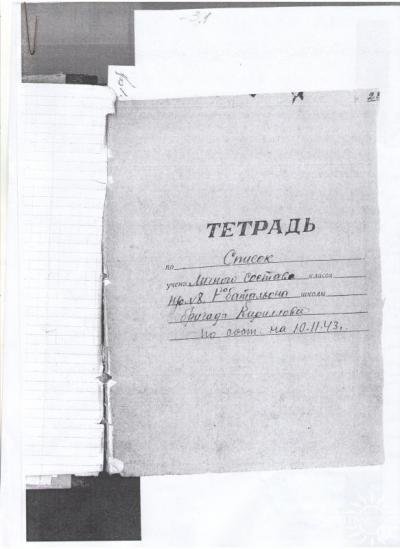 -31
ТЕТРАДЬ
по Список
учени Личного состава класса
1го батальона школы
бригада Кириллова
по сост. на 10.11.43г.